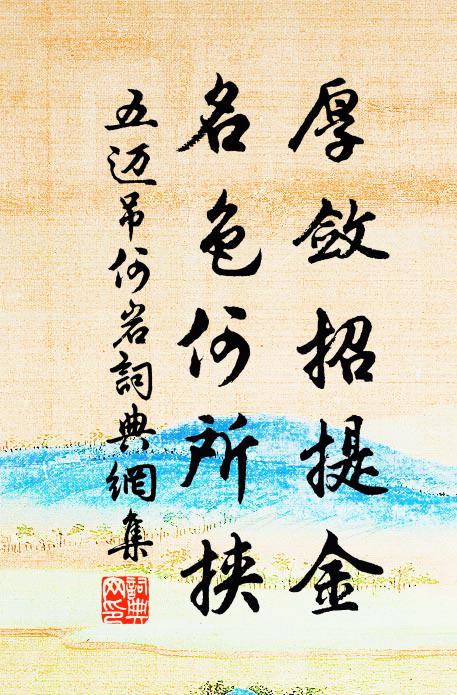 厚斂招提金
名色何所挾
五迈吊何岩詞典網集
詞典